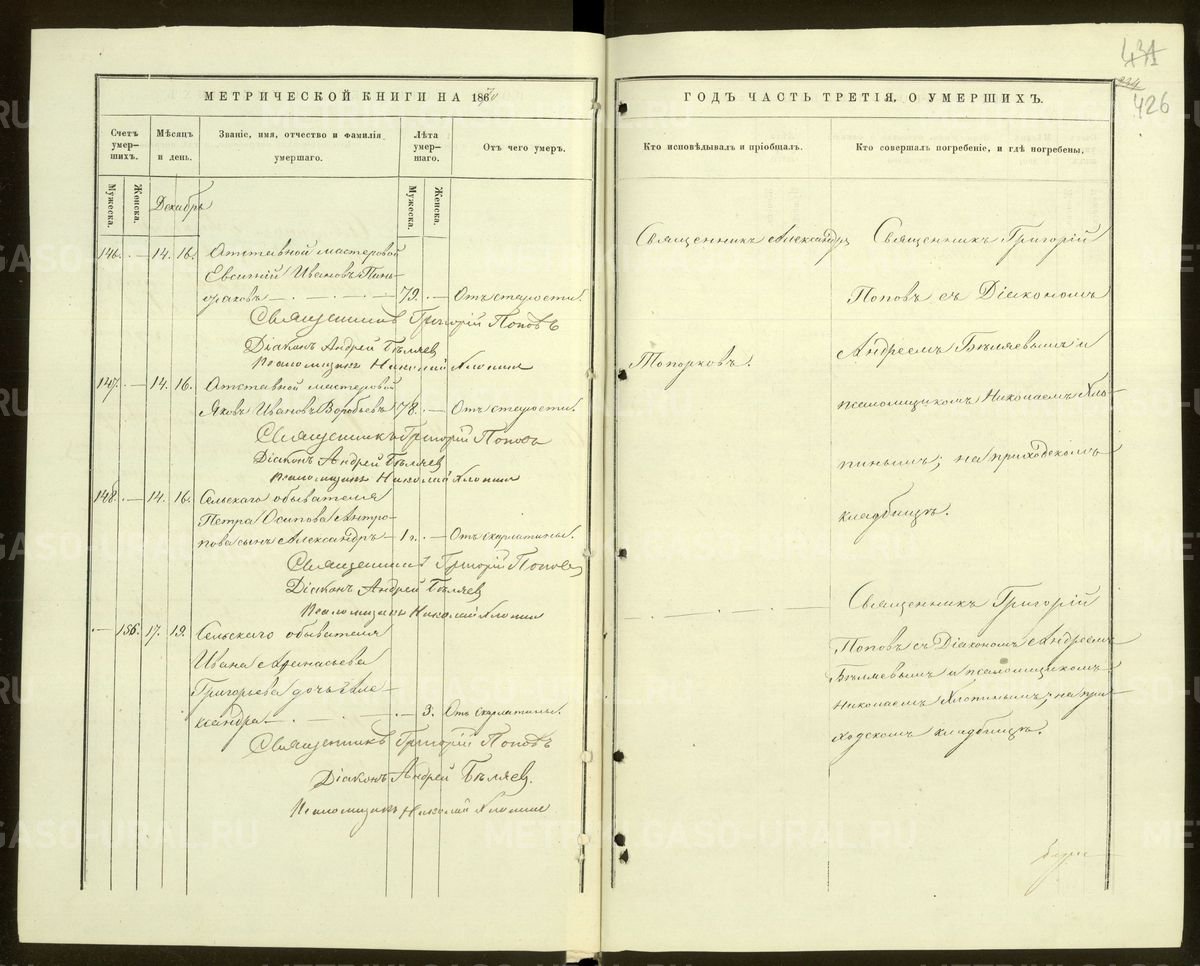 431
426
МЕТРИЧЕСКОЙ КНИГИ НА 1870
ГОДЪ ЧАСТЬ ТРЕТІЯ, О УМЕРШИХЪ.
Счетъ умер-шихъ.
Мѣсяцъ и день.
Званіе, имя, отчество и фамилія умершаго.
Лѣта умер-шаго.
Отъ чего умеръ.
Кто исповѣдывалъ и пріобщалъ.
Кто совершалъ погребеніе, и гдѣ погребены.
Мужеска.
Женска.
Декабрь
Мужеска.
Женска.
146. — 14. 16. Отставной мастеровой
Евсигній Ивановъ Пинь-
гаховъ — 79. — Отъ старости.
Священникъ Григорій Поповъ
Діаконъ Андрей Бѣляевъ
Псаломщикъ Николай Хлопинъ
147. — 14. 16. Отставной мастеровой
Яковъ Ивановъ Воробьевъ 78. — Отъ старости.
Священникъ Григорій Поповъ
Діаконъ Андрей Бѣляевъ
Псаломщикъ Николай Хлопинъ
148. — 14. 16. Сельскаго обывателя
Петра Осипова Антро-
пова сынъ Александръ — 1 г. — Отъ скарлатины.
Священникъ Григорій Поповъ
Діаконъ Андрей Бѣляевъ
Псаломщикъ Николай Хлопинъ
— 136. 17. 19. Сельскаго обывателя
Ивана Афанасьева
Григорьева дочь Але-
ксандра — 3. Отъ скарлатины.
Священникъ Григорій Поповъ
Діаконъ Андрей Бѣляевъ.
Псаломщикъ Николай Хлопинъ
Священникъ Александръ
Топорковъ.
Священникъ Григорій
Поповъ съ Діакономъ
Андреемъ Бѣляевымъ и
псаломщикомъ Николаемъ Хло-
пинымъ; на приходскомъ
кладбищѣ.
Священникъ Григорій
Поповъ съ Діакономъ Андреемъ
Бѣляевымъ и псаломщикомъ
Николаемъ Хлопинымъ; на при-
ходскомъ кладбищѣ.
METRIKI.GASO-URAL.RU